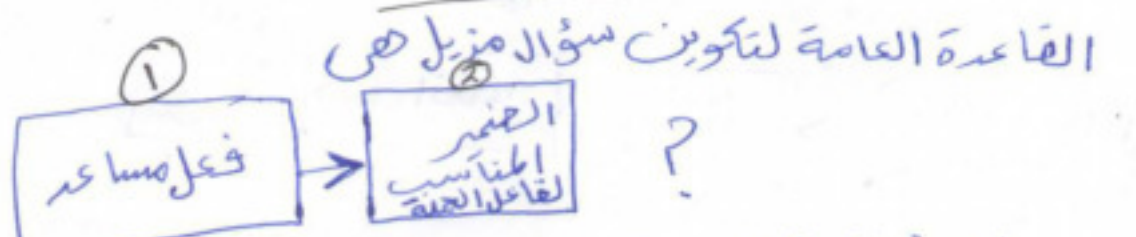 القاعدة العامة لتكوين سؤال مذيل هى
①
②
فعل مساعد
الضمير
المناسب
لفاعل الجملة
?